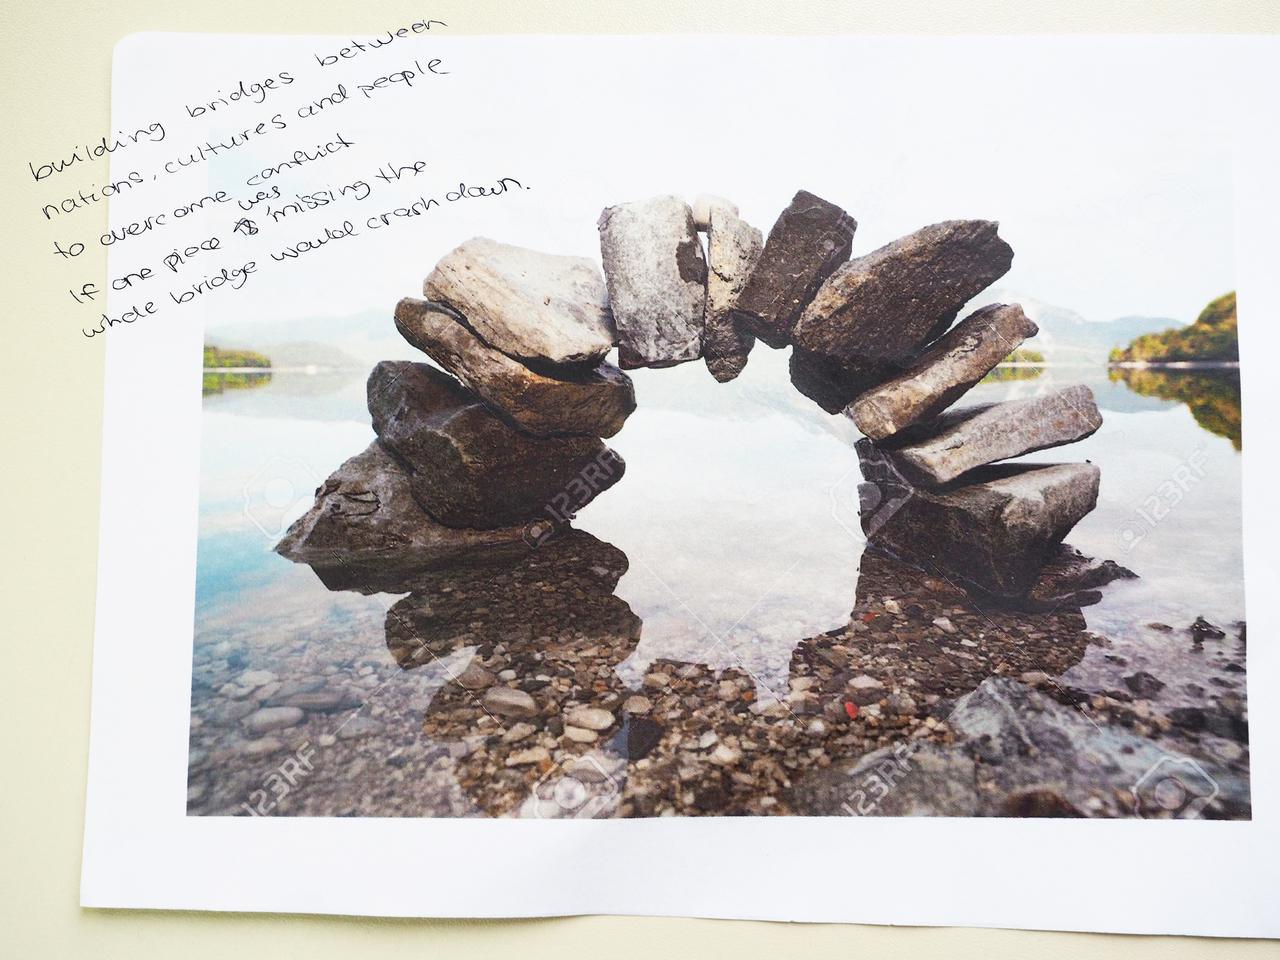 building bridges between
nations, cultures and people
to overcome conflict
If one piece was missing the
whole bridge would crash down.
123RF
123RF
123RF
123RF
123RF